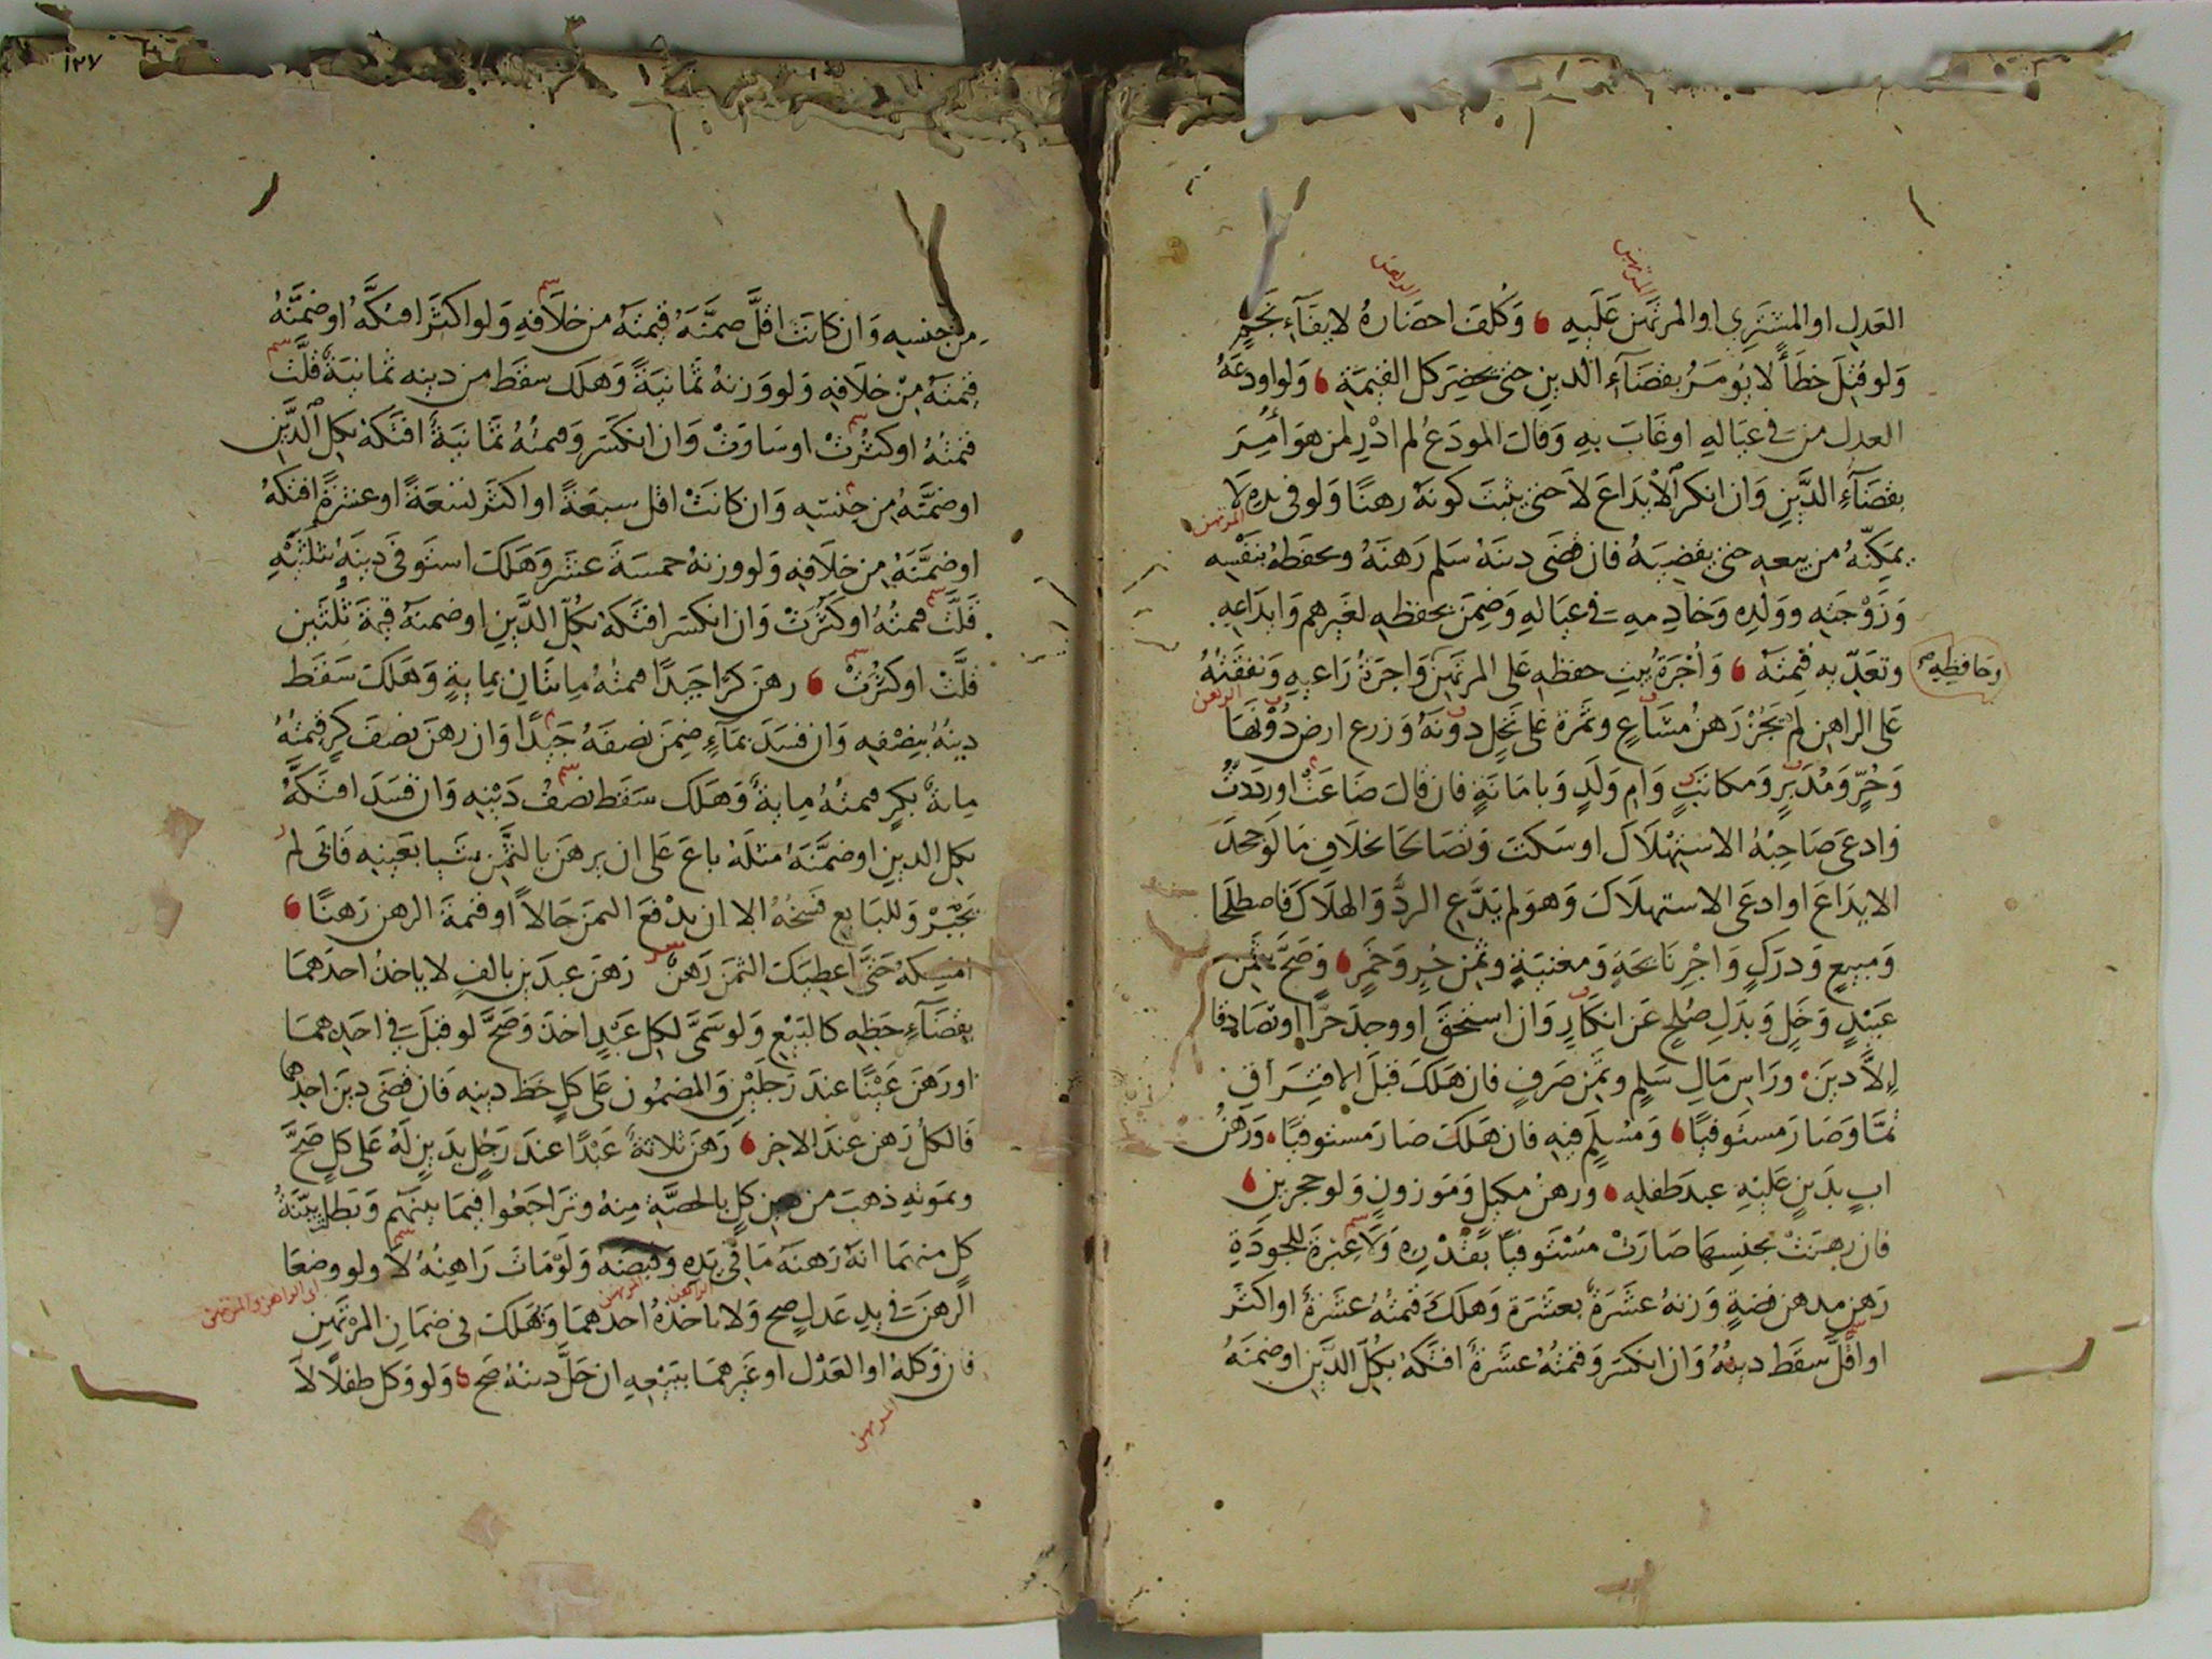 العدل او المشتري او المرتهن عليه وكلف احضاره لا بقاء نجم
ولو قتل خطأ لا يؤمر بقضاء الدين حتى يحضر كل القيمة ولو اودعه
العدل من في عياله او غاب به وقال المودع لم ادر لمن هو أمر
بقضاء الدين وان انكر الايداع لا حتى يثبت كونه رهنا ولو في يده لا
يمكنه من بيعه حتى يقضيه فان قضى دينه سلم رهنه وحفظه بنفسه
وزوجته وولده وخادمه في عياله وضمن بحفظه لغيرهم وايداعه
وتعديه قيمته واجرة بيت حفظه على المرتهن واجرة راعيه ونفقته
وحافظه صح
على الراهن لم يجز رهن مشاع وثمرة على نخل دونه وزرع ارض دونها
وحر ومدبر ومكاتب وام ولد وبامانة فان قال ضاعت او رددت
وادعى صاحبه الاستهلاك او سكت وتصالحا بخلاف ما لو جحد
الايداع او ادعى الاستهلاك وهو لم يدع الرد والهلاك فاصطلحا
ومبيع ودرك واجر نائحة ومغنية وثمن حر وخمر وصح بثمن
عبد وخل وبدل صلح عن انكار وان استحق او وجد حرا او تصادقا
الا دين وراس مال سلم وثمن صرف فان هلك قبل الافتراق
تما وصار مستوفيا ومسلم فيه فان هلك صار مستوفيا ورهن
اب بدين عليه عبد طفله ورهن مكيل وموزون ولو حجرين
فان رهنت بجنسها صارت مستوفيا بقدره ولا عبرة للجودة
رهن مدهن فضة وزنه عشرة بعشرة وهلك قيمته عشرة او اكثر
او اقل سقط دينه وان انكسر وقيمته عشرة افتكه بكل الدين او ضمنه
١٢٧
من جنسه وان كانت اقل ضمنه قيمته من خلافه ولو اكثر افتكه او ضمنه
قيمته من خلافه ولو وزنه ثمانية وهلك سقط من دينه ثمانية قلت
قيمته او كثرت او ساوت وان انكسر وقيمته ثمانية افتكه بكل الدين
او ضمنه من جنسه وان كانت اقل سبعة او اكثر تسعة او عشرة افتكه
او ضمنه من خلافه ولو وزنه خمسة عشر وهلك استوفى دينه بثلثيه
قلت قيمته او كثرت وان انكسر افتكه بكل الدين او ضمنه قيمة ثلثين
قلت او كثرت رهن كرا جيدا قيمته مائتان بماية وهلك سقط
دينه بنصفه وان فسد بماء ضمن نصفه جيدا وان رهن نصف كر قيمته
ماية بكر قيمته ماية وهلك سقط نصف دينه وان فسد افتكه
بكل الدين او ضمنه مثله باع على ان يرهن بالثمن شيا بعينه فابى لم
يجبر وللبايع فسخه الا ان يدفع الثمن حالا او قيمة الرهن رهنا
امسكه حتى اعطيك الثمن رهن رهن عبدين بالف لا ياخذ احدهما
بقضاء حظه كالبيع ولو سمى لكل عبد اخذ وصح لو قبل في احدهما
او رهن عينا عند رجلين والمضمون على كل حظ دينه فان قضى دين احدهما
فالكل رهن عند الاخر رهن ثلاثة عبدا عند رجل بدين له على كل صح
وبموته ذهب من دين كل بالحصة منه وتراجعوا فيما بينهم وبطل بينة
كل منهما انه رهنه ما في يده وقبضه ولو مات راهنه لا ولو وضعا
الرهن في يد عدل صح ولا ياخذه احدهما وهلك في ضمان المرتهن
فان وكله او العدل او غيرهما ببيعه ان حل دينه صح ولو وكل طفلا لا